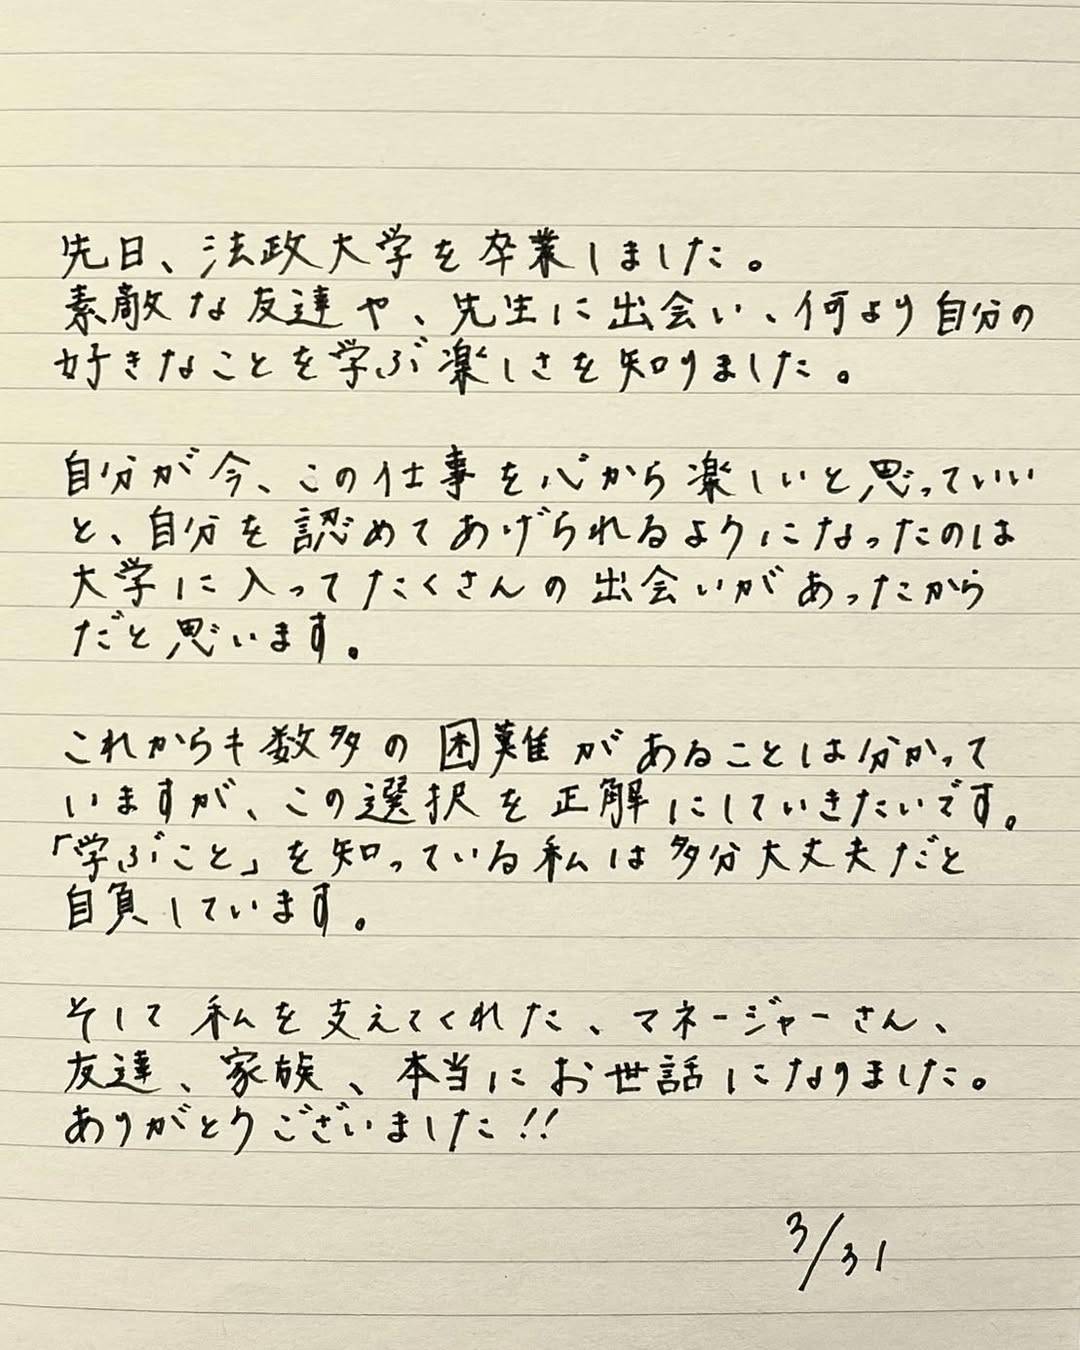 先日、法政大学を卒業しました。
素敵な友達や、先生に出会い、何より自分の
好きなことを学ぶ楽しさを知りました。
自分が今、この仕事を心から楽しいと思っていい
と、自分を認めてあげられるようになったのは
大学に入ってたくさんの出会いがあったから
だと思います。
これからも数多の困難があることは分かって
いますが、この選択を正解にしていきたいです。
「学ぶこと」を知っている私は多分大丈夫だと
自負しています。
そして私を支えてくれた、マネージャーさん、
友達、家族、本当にお世話になりました。
ありがとうございました!!
3/31